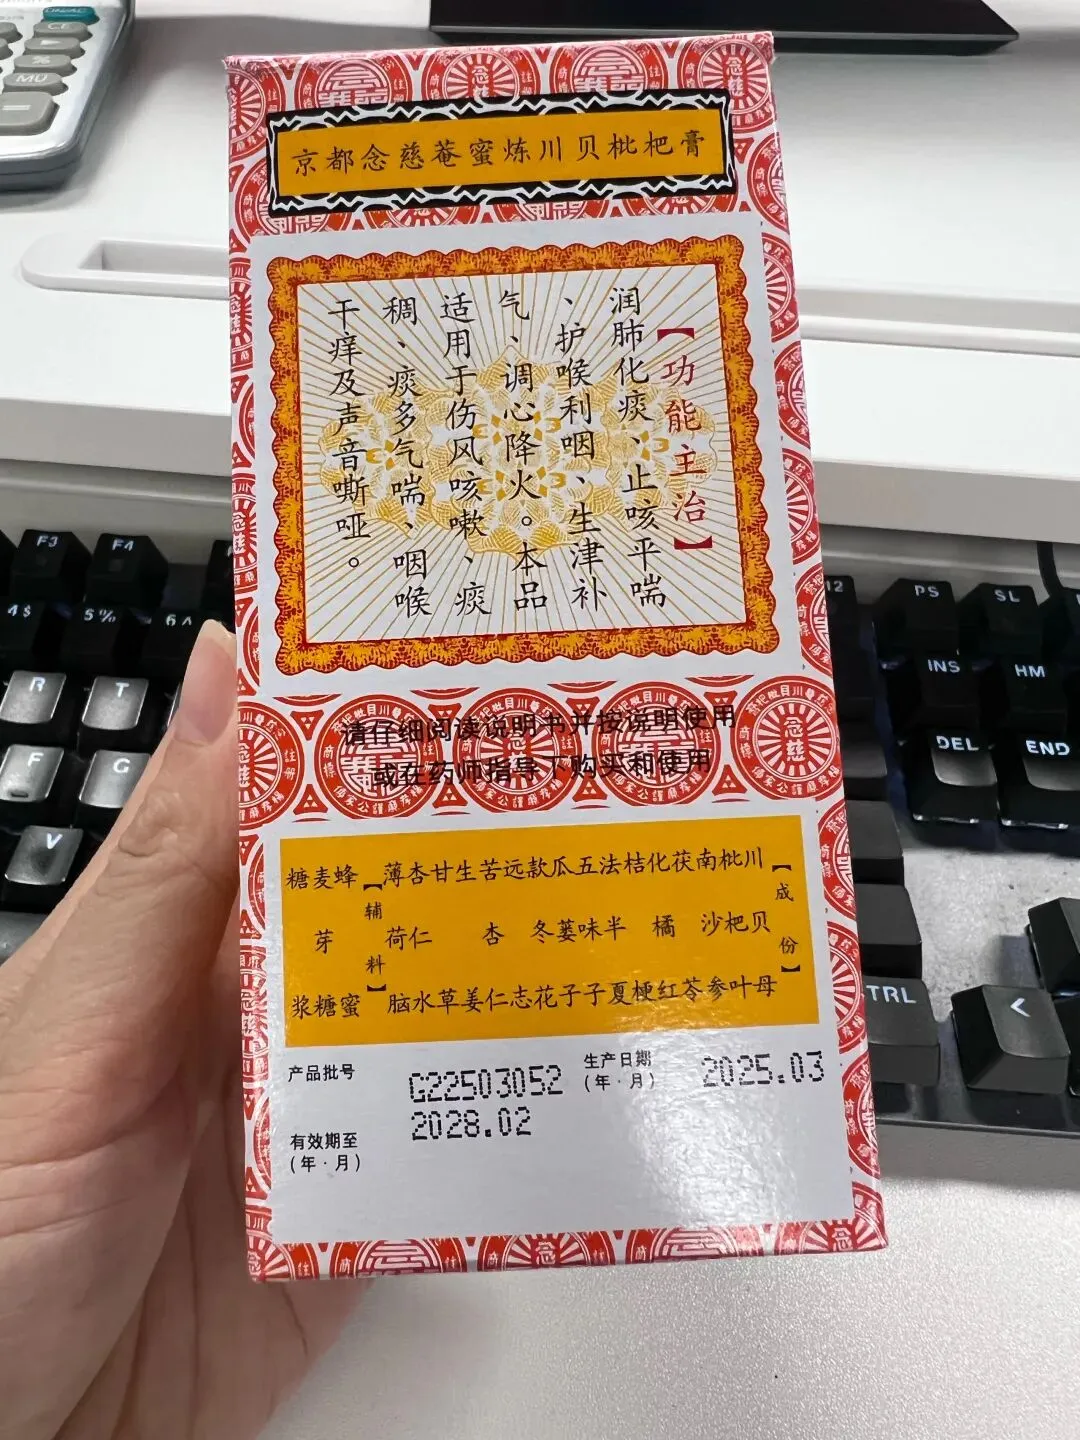 京都念慈菴蜜炼川贝枇杷膏
【功能主治】
润肺化痰、止咳平喘
、护喉利咽、生津补
气、调心降火。本品
适用于伤风咳嗽、痰
稠、痰多气喘、咽喉
干痒及声音嘶哑。
请仔细阅读说明书并按说明使用
或在药师指导下购买和使用
【成份】
川贝母
枇杷叶
南沙参
茯苓
化橘红
桔梗
法半夏
五味子
瓜蒌子
款冬花
远志
苦杏仁
生姜
甘草
杏仁水
薄荷脑
【辅料】
蜂蜜
麦芽糖
糖浆
产品批号
G22503052
生产日期
(年·月)
2025.03
有效期至
(年·月)
2028.02
F3
F4
4 $
5 %
6 ^
R
T
F
G
V
12
PS
SL
INS
HM
DEL
END
TRL
<
%
MU
=